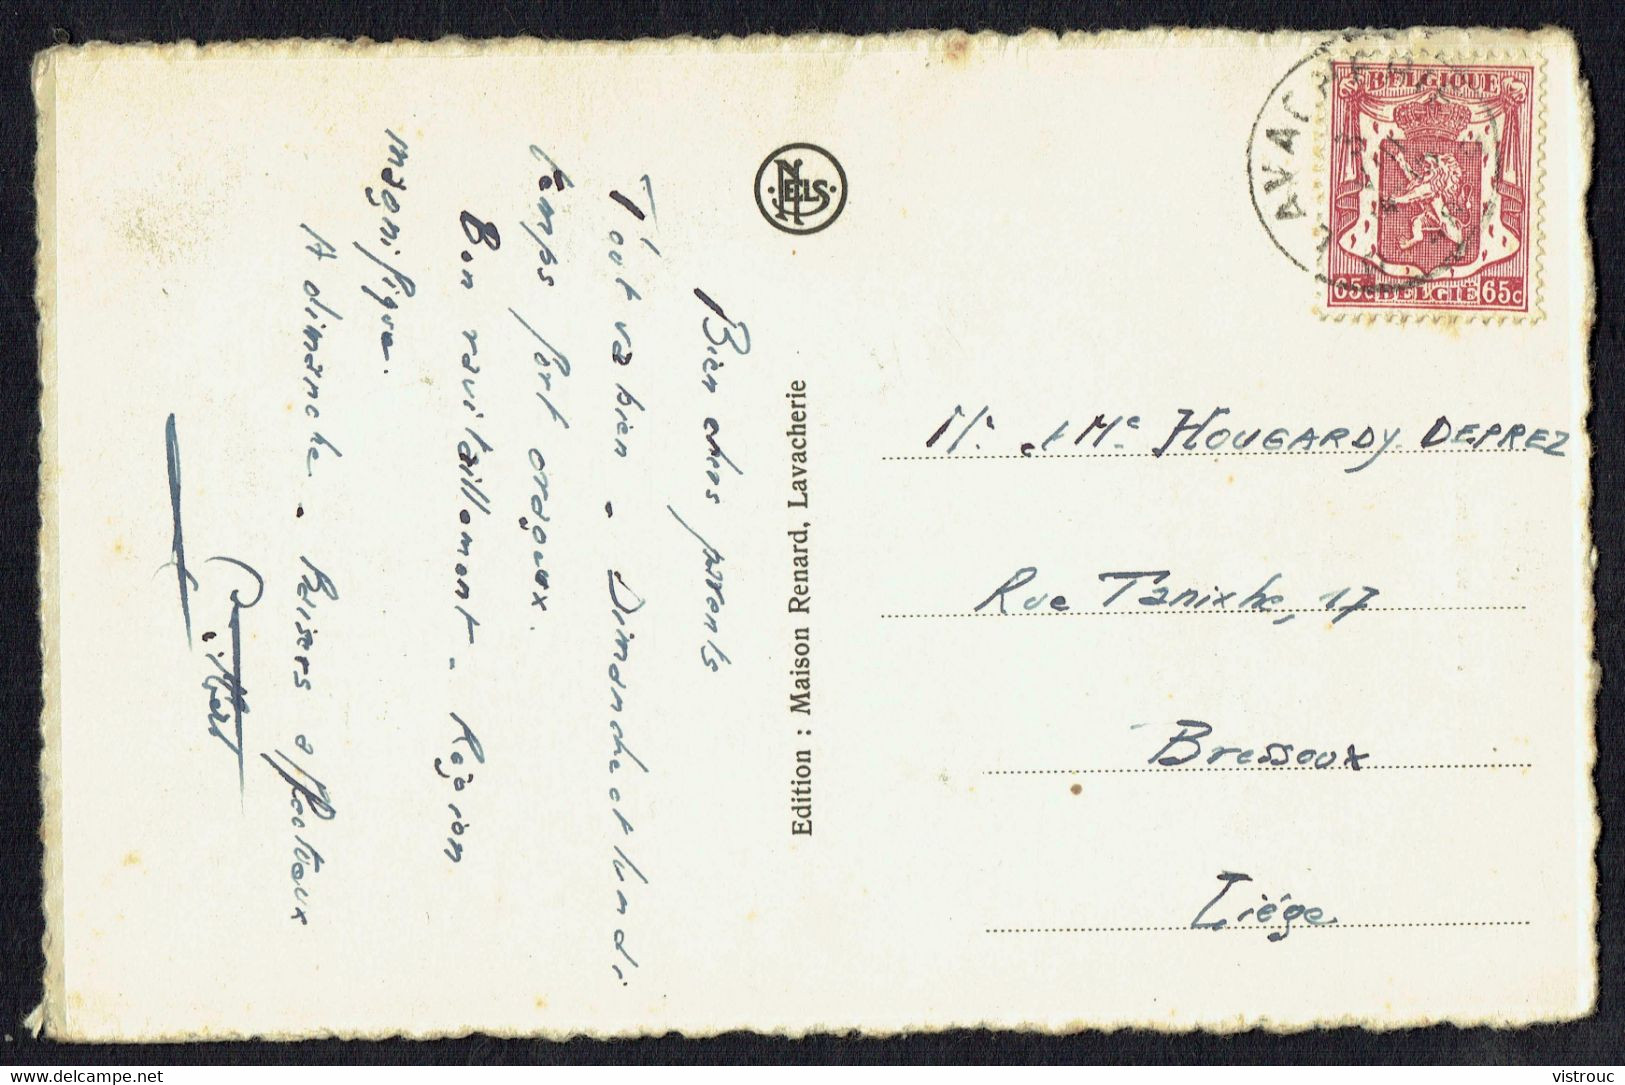 Bien chers parents
Tout va bien. Dimanche et lundi
temps fort orageux.
Bon ravitaillement. Région
magnifique.
A dimanche. Baisers affectueux
NELS
Edition : Maison Renard, Lavacherie
LAVACHERIE
BELGIQUE
65c BELGIË 65c
Mr et Me HOUGARDY-DEPREZ
Rue Tanixhe, 17
Bressoux
Liége
www.delcampe.net
vistrouc